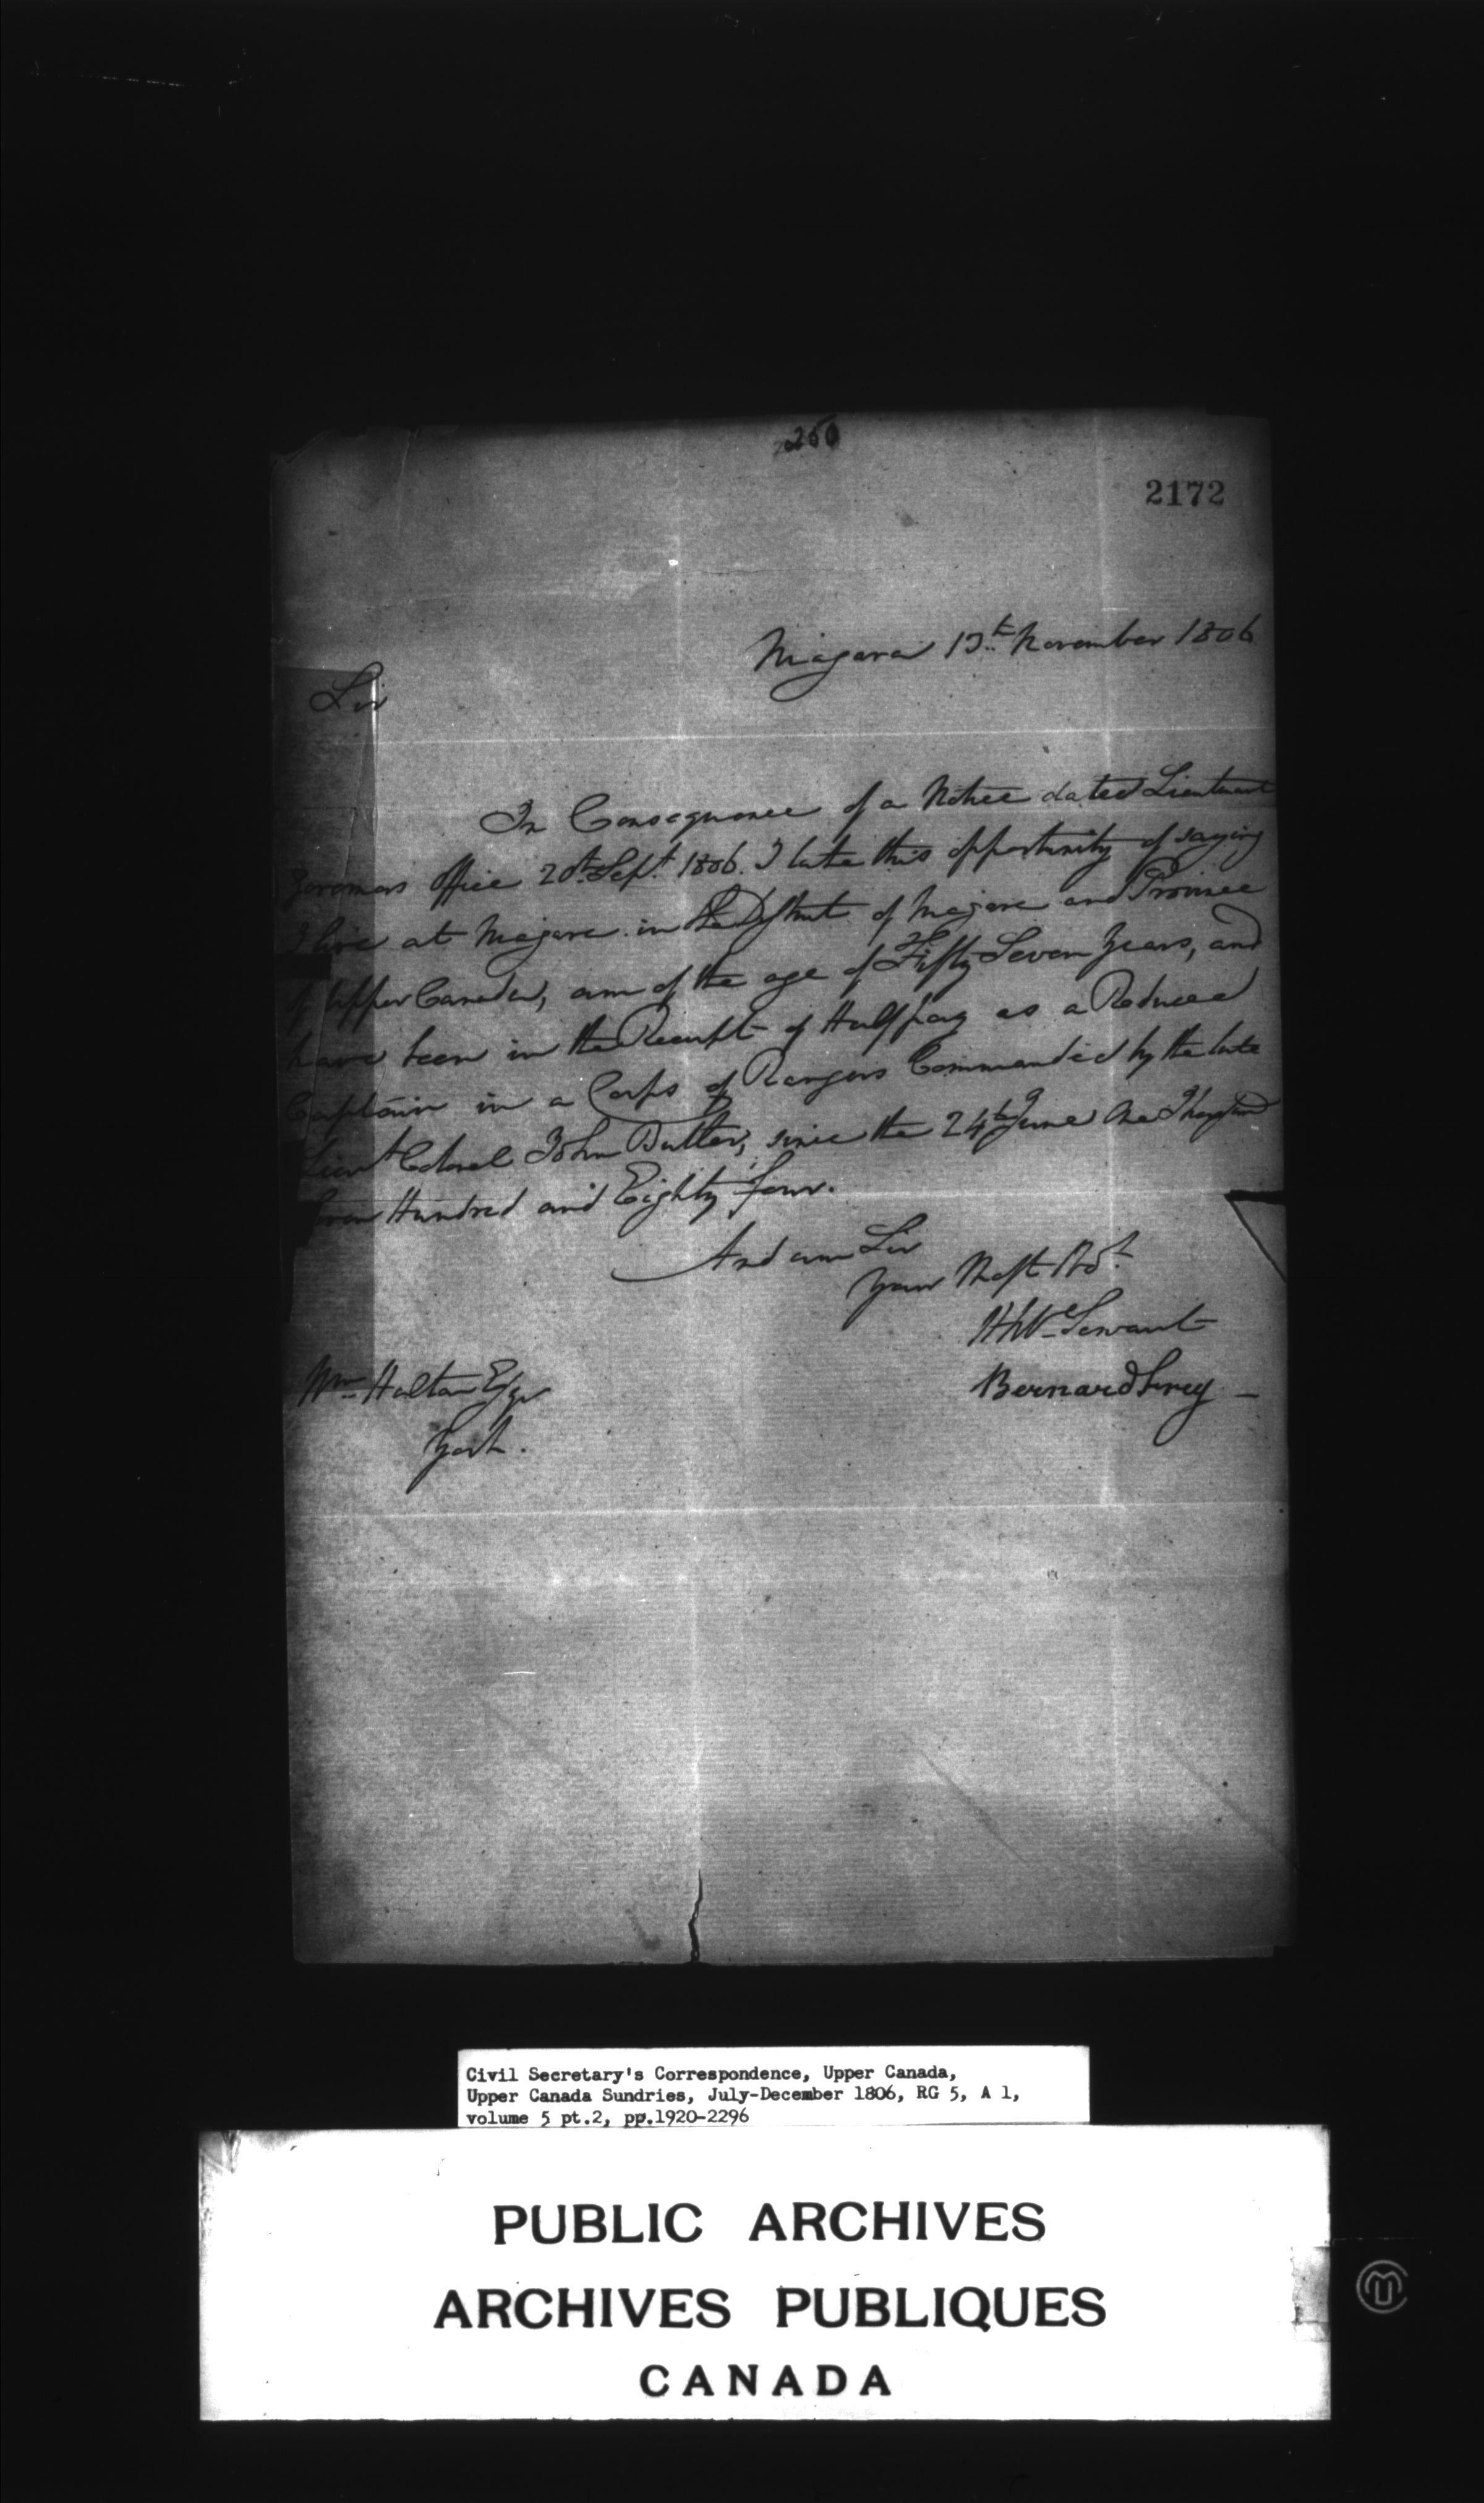 260
2172
Niagara 13th November 1806
Sir
In Consequence of a Notice dated Lieutenant
Governors Office 20th Sept 1806. I take this opportunity of saying
I live at Niagara in the District of Niagara and Province
of Upper Canada, am of the age of Fifty Seven Years, and
have been in the Receipt of Half pay as a Reduced
Captain in a Corps of Rangers Commanded by the late
Lieut Colonel John Butler, since the 24th June One Thousand
Seven Hundred and Eighty Four.
And am Sir
Your Most Obt
Hble Servant
Bernard Frey
Wm Halton Esqr
York.
Civil Secretary's Correspondence, Upper Canada,
Upper Canada Sundries, July-December 1806, RG 5, A 1,
volume 5 pt.2, pp.1920-2296
PUBLIC ARCHIVES
ARCHIVES PUBLIQUES
CANADA